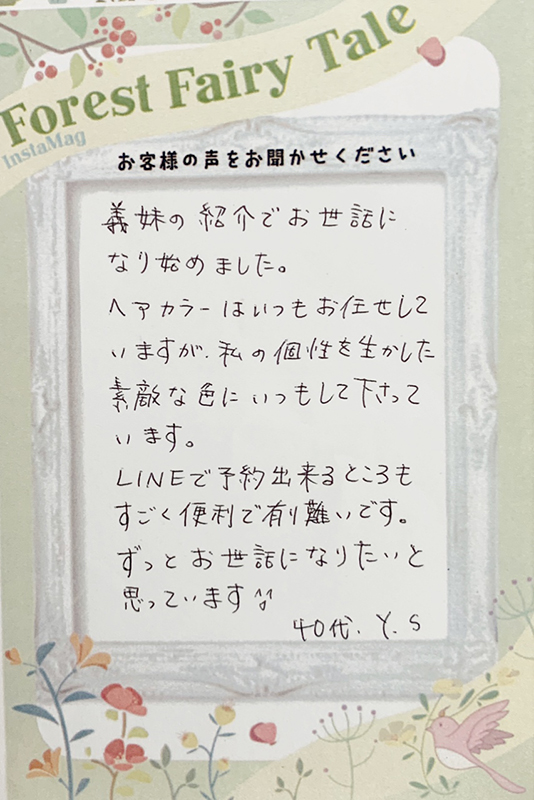 Forest Fairy Tale
InstaMag
お客様の声をお聞かせください
義妹の紹介でお世話に
なり始めました。
ヘアカラーはいつもお任せして
いますが、私の個性を生かした
素敵な色にいつもして下さって
います。
LINEで予約出来るところも
すごく便利で有り難いです。
ずっとお世話になりたいと
思っています
40代. Y. S